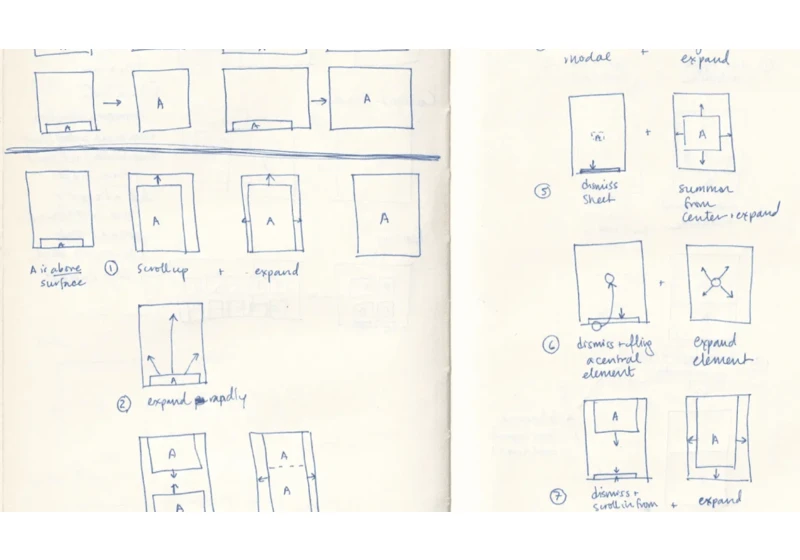 A
A
A
A
A
A
A
A
A is above
surface
① scroll up + expand
A
② expand rapdly
A
A
A
A
modal + expand
A
A
+
⑤ dismiss
sheet
summon
from
center + expand
+
⑥ dismiss + fling
a central
element
expand
element
A
A
A
⑦ dismiss +
scroll in from + expand